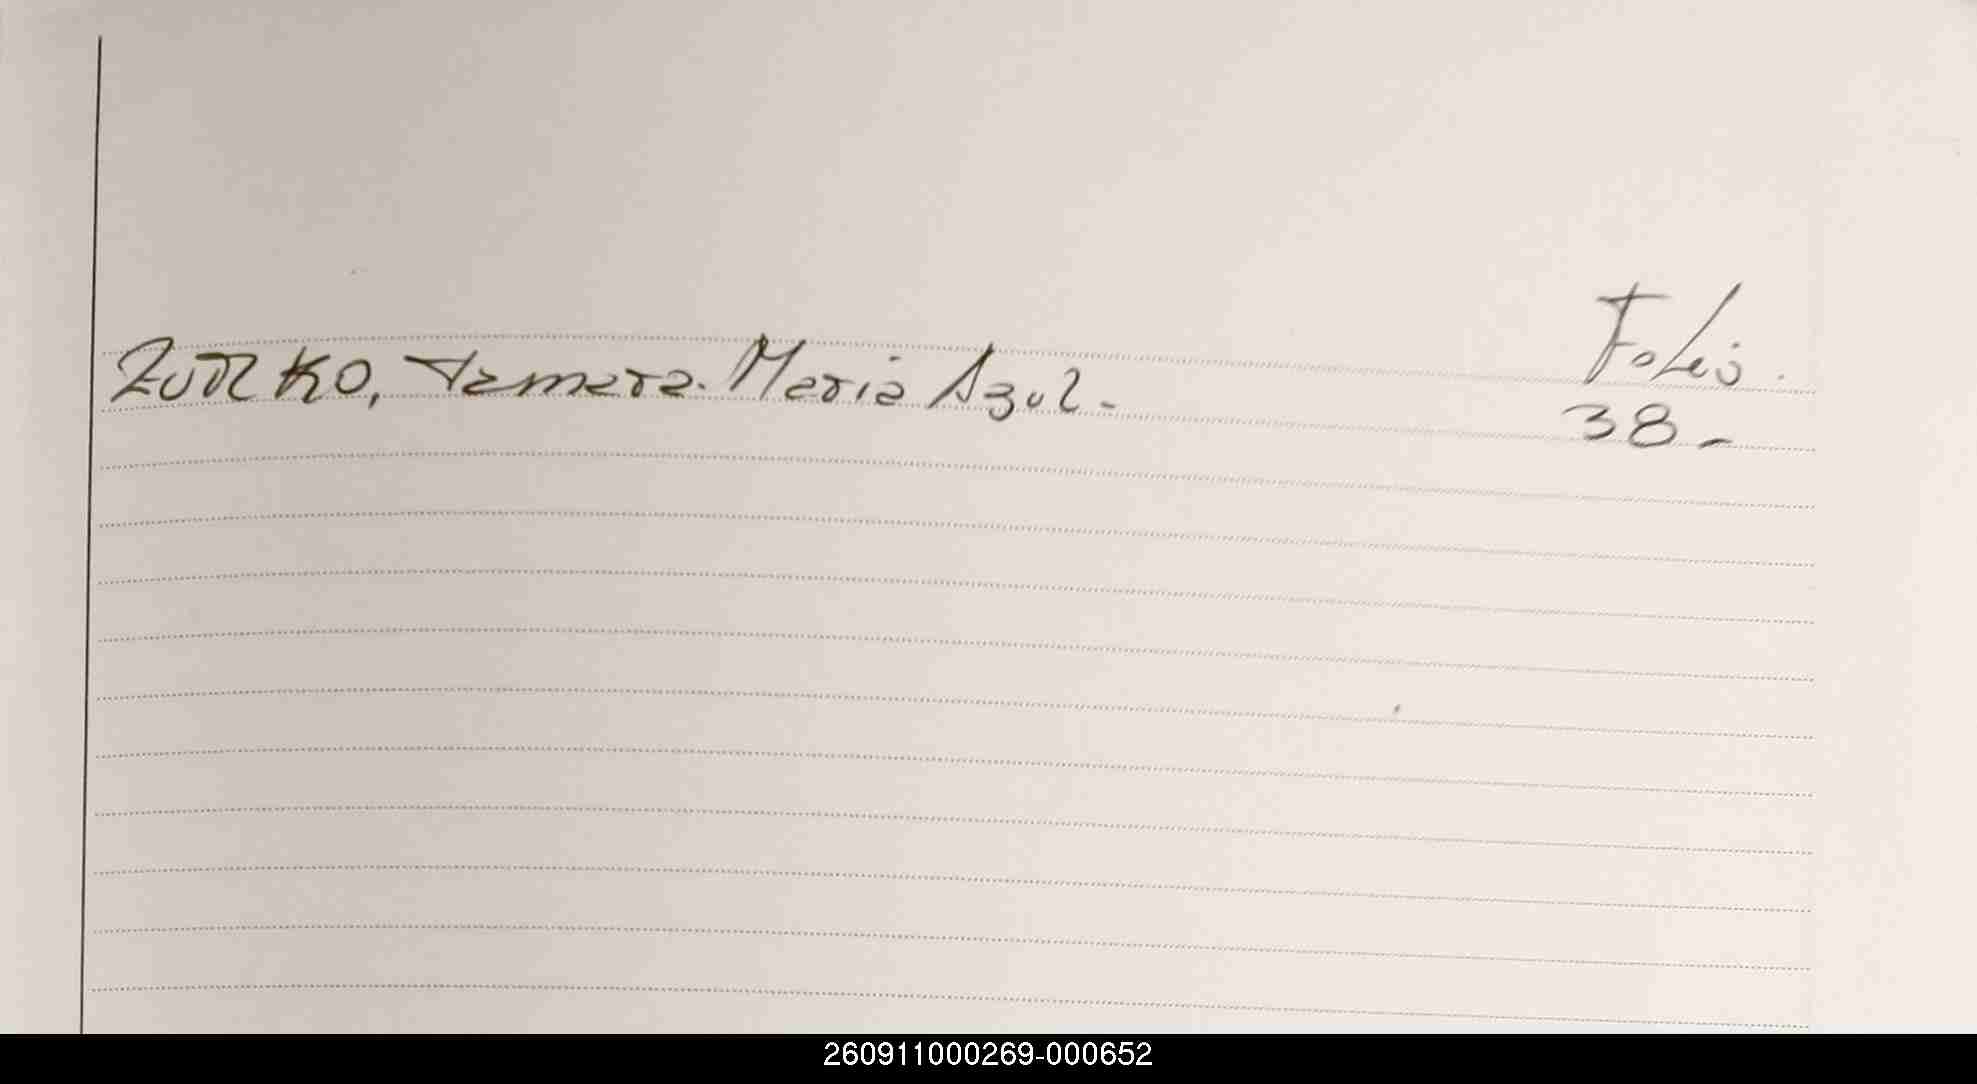 Folio.
Zurko, Tamara Maria Azul.-
38-
260911000269-000652